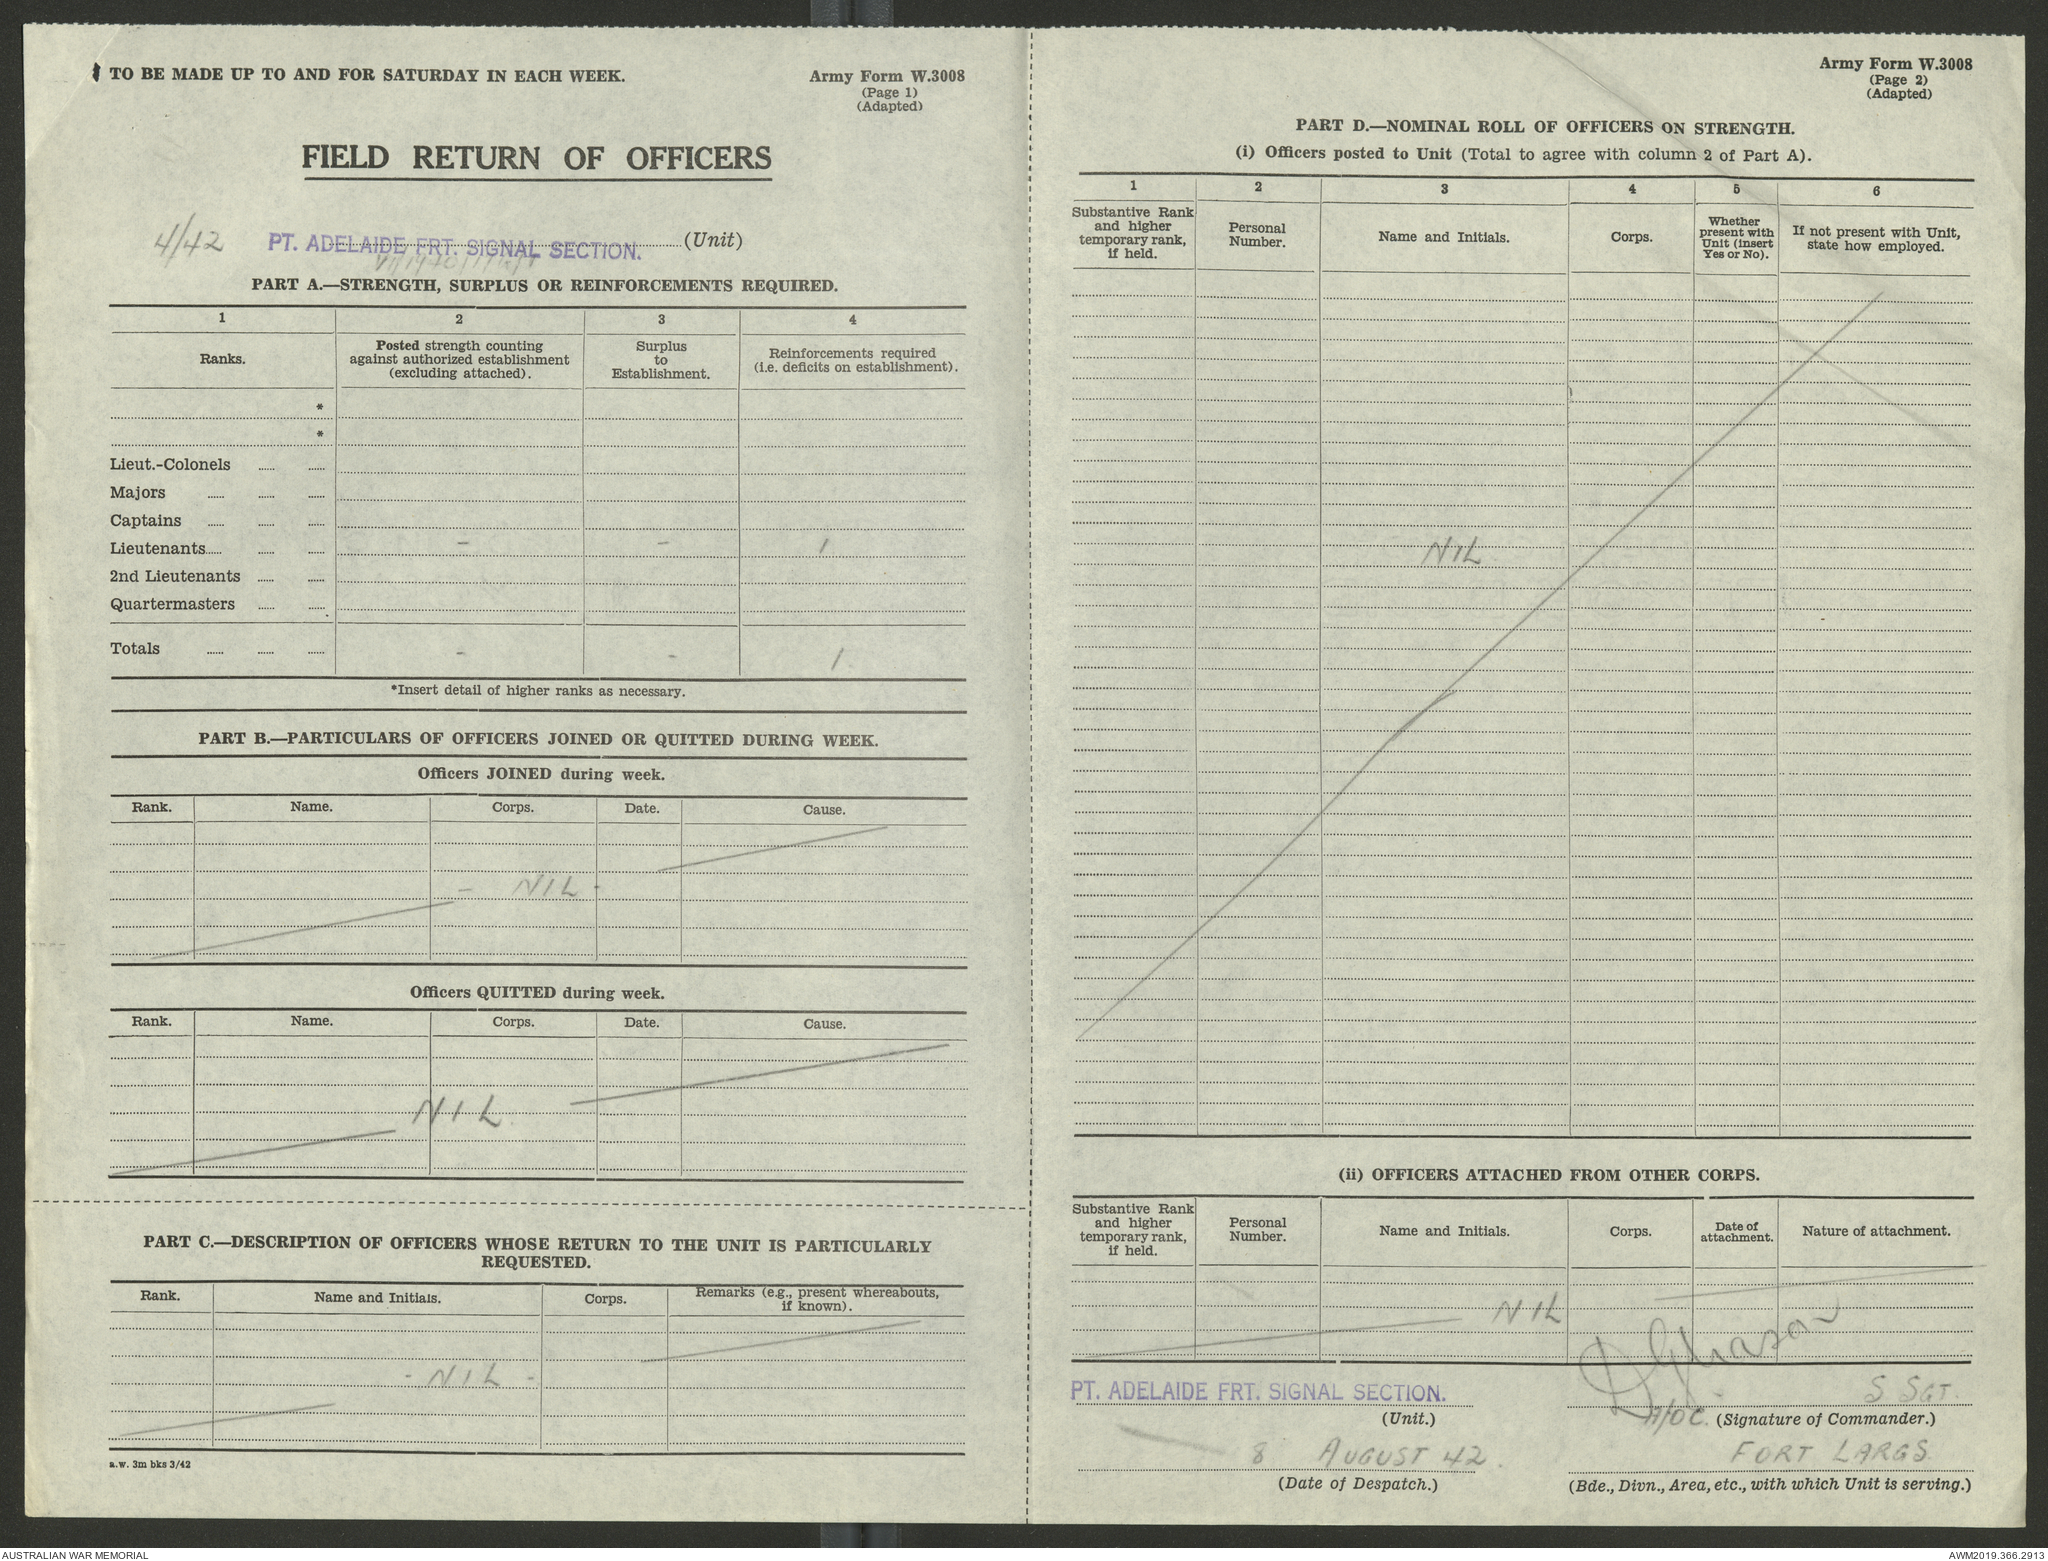 TO BE MADE UP TO AND FOR SATURDAY IN EACH WEEK.
Army Form W.3008
(Page 1)
(Adapted)
FIELD RETURN OF OFFICERS
4/42 PT. ADELAIDE FRT. SIGNAL SECTION. (Unit)
PART A.—STRENGTH, SURPLUS OR REINFORCEMENTS REQUIRED.
1 2 3 4
Ranks. Posted strength counting against authorized establishment (excluding attached). Surplus to Establishment. Reinforcements required (i.e. deficits on establishment).
*
*
Lieut.-Colonels
Majors
Captains
Lieutenants - - 1
2nd Lieutenants
Quartermasters
Totals - - 1
*Insert detail of higher ranks as necessary.
PART B.—PARTICULARS OF OFFICERS JOINED OR QUITTED DURING WEEK.
Officers JOINED during week.
Rank. Name. Corps. Date. Cause.
- NIL -
Officers QUITTED during week.
Rank. Name. Corps. Date. Cause.
NIL
PART C.—DESCRIPTION OF OFFICERS WHOSE RETURN TO THE UNIT IS PARTICULARLY
REQUESTED.
Rank. Name and Initials. Corps. Remarks (e.g., present whereabouts, if known).
- NIL -
a.w. 3m bks 3/42
Army Form W.3008
(Page 2)
(Adapted)
PART D.—NOMINAL ROLL OF OFFICERS ON STRENGTH.
(i) Officers posted to Unit (Total to agree with column 2 of Part A).
1 2 3 4 5 6
Substantive Rank and higher temporary rank, if held. Personal Number. Name and Initials. Corps. Whether present with Unit (insert Yes or No). If not present with Unit, state how employed.
NIL
(ii) OFFICERS ATTACHED FROM OTHER CORPS.
Substantive Rank and higher temporary rank, if held. Personal Number. Name and Initials. Corps. Date of attachment. Nature of attachment.
NIL
PT. ADELAIDE FRT. SIGNAL SECTION. S SGT.
(Unit.) A/OC. (Signature of Commander.)
8 AUGUST 42. FORT LARGS
(Date of Despatch.) (Bde., Divn., Area, etc., with which Unit is serving.)
AUSTRALIAN WAR MEMORIAL
AWM2019.366.2913